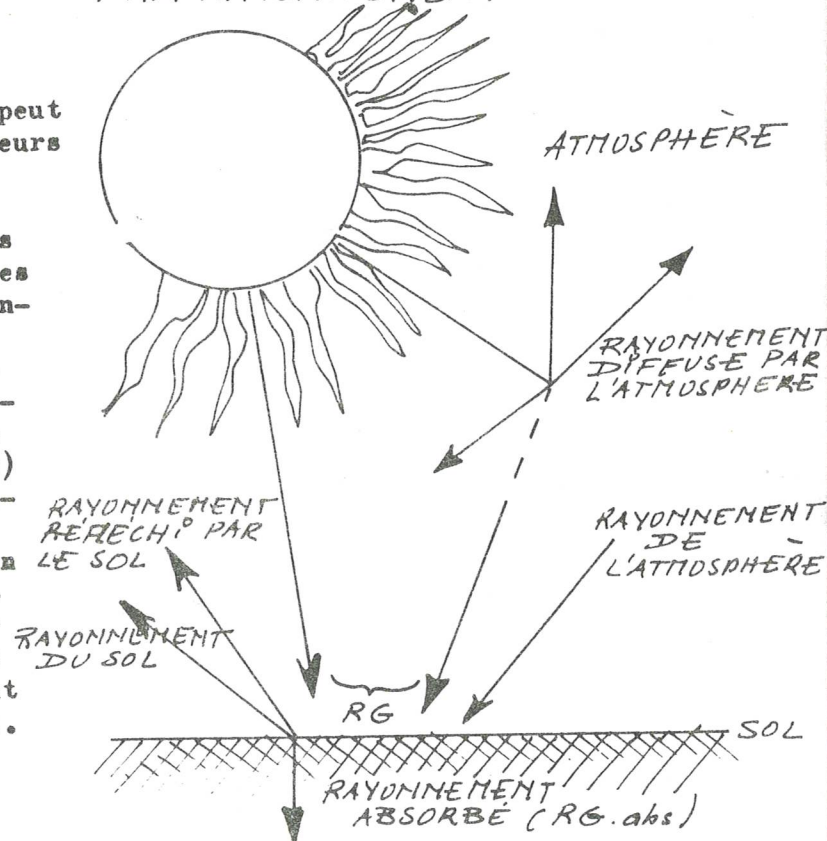 peut
eurs
s
es
n-
-
)
-
n
t
.
ATMOSPHÈRE
RAYONNEMENT
DIFFUSE PAR
L'ATMOSPHERE
RAYONNEMENT
RÉFLÉCHI PAR
LE SOL
RAYONNEMENT
DU SOL
RAYONNEMENT
DE
L'ATMOSPHÈRE
RG
SOL
RAYONNEMENT
ABSORBÉ (RG.abs)